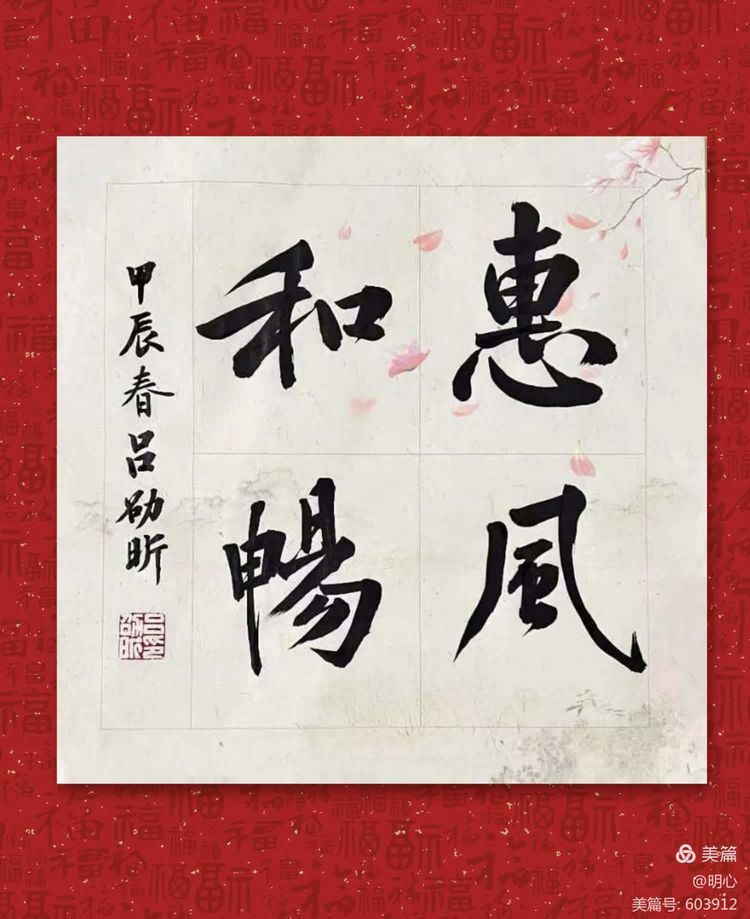 惠風
和暢
甲辰春吕劭昕
吕印
劭昕
美篇
@明心
美篇号: 603912